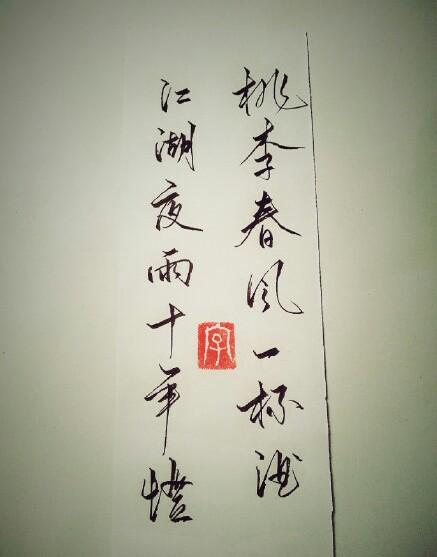 桃李春风一杯酒
江湖夜雨十年燈
字